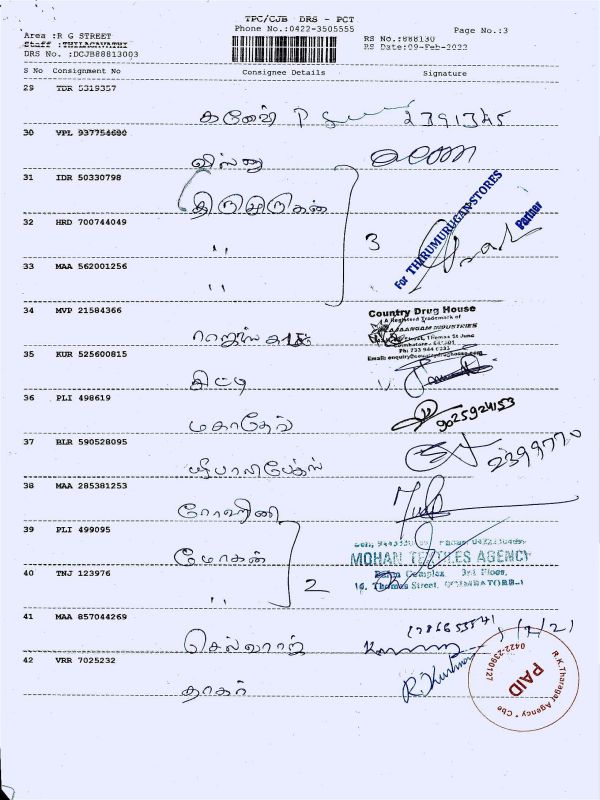 TPC/CJB DRS - PCT
Phone No.:0422-3505555
Page No.:3
Area :R G STREET
RS No.:888130
Staff :THILAGAVATHI
RS Date:09-Feb-2022
DRS No. :DCJB88813003
S No Consignment No Consignee Details Signature
29 TDR 5319357
கணேஷ் 2391345
30 VPL 937754680
விஸ்ணு
31 IDR 50330798
திருமுருகன்
For THIRUMURUGAN STORES
Partner
32 HRD 700744049
,, 3
33 MAA 562001256
,,
34 MVP 21584366
Country Drug House
A Registered Trademark of
RAJARANGAM INDUSTRIES
Ph: 733 944
Email: enquiry@countrydrughouse.com
35 KUR 525600815
சிட்டி
36 PLI 498619
மகாதேவ் 9025924153
37 BLR 590528095
2399770
38 MAA 285381253
ரோஹிணி
39 PLI 499095
மோகன்
MOHAN TEXTILES AGENCY
Complex 3rd Floor,
Thomas Street, COIMBATORE-1
40 TNJ 123976
,, 2
41 MAA 857044269
செல்வராஜ்
42 VRR 7025232
தாகர் R. Kumar
R.K.Tharagar Agency • Cbe
0422-2390127
PAID